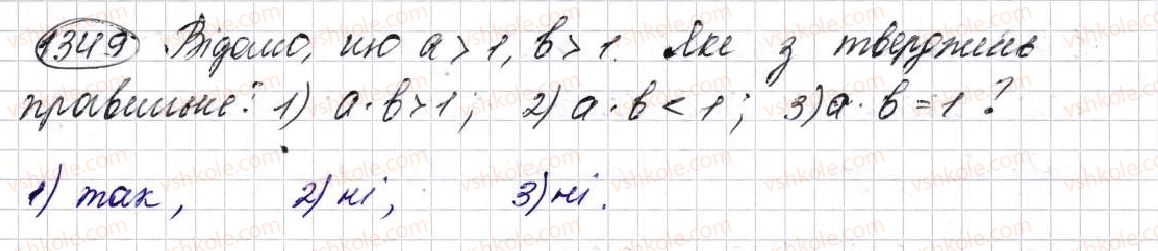 1349. Відомо, що a > 1, b > 1. Яке з тверджень
правильне: 1) a·b > 1; 2) a·b < 1; 3) a·b = 1?
1) так, 2) ні, 3) ні.